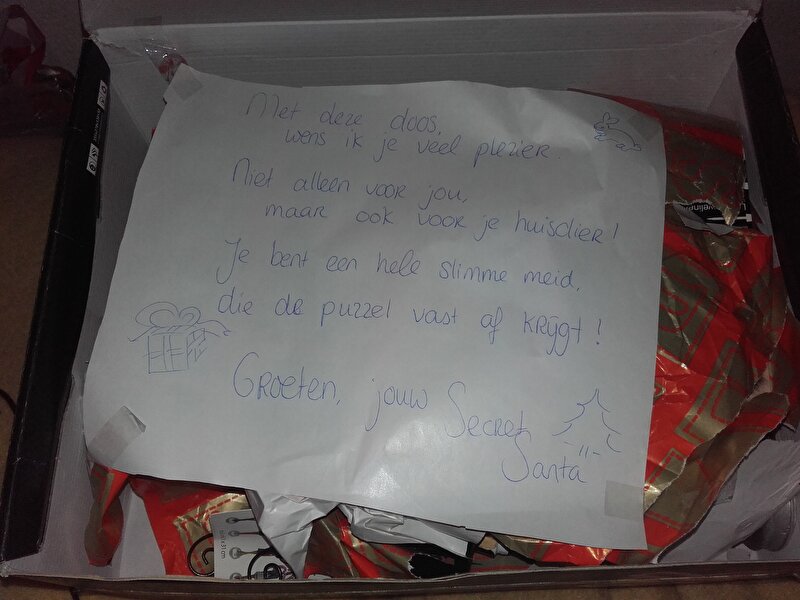 Met deze doos,
wens ik je veel plezier.
Niet alleen voor jou,
maar ook voor je huisdier!
Je bent een hele slimme meid,
die de puzzel vast af krijgt!
Groeten, jouw Secret
Santa